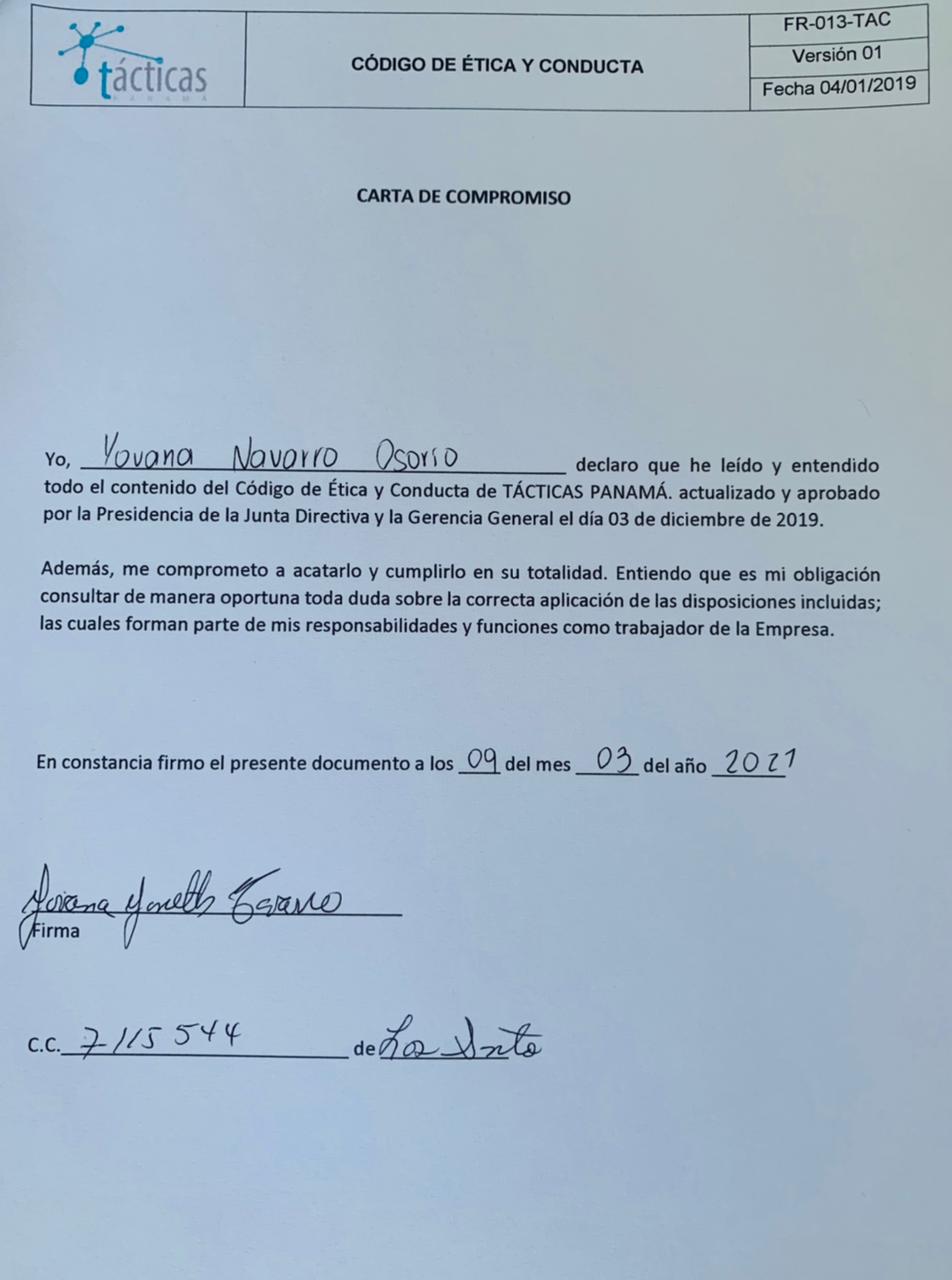 tácticas
PANAMÁ
CÓDIGO DE ÉTICA Y CONDUCTA
FR-013-TAC
Versión 01
Fecha 04/01/2019
CARTA DE COMPROMISO
Yo, Yovana Navarro Osorio declaro que he leído y entendido
todo el contenido del Código de Ética y Conducta de TÁCTICAS PANAMÁ. actualizado y aprobado
por la Presidencia de la Junta Directiva y la Gerencia General el día 03 de diciembre de 2019.
Además, me comprometo a acatarlo y cumplirlo en su totalidad. Entiendo que es mi obligación
consultar de manera oportuna toda duda sobre la correcta aplicación de las disposiciones incluidas;
las cuales forman parte de mis responsabilidades y funciones como trabajador de la Empresa.
En constancia firmo el presente documento a los 09 del mes 03 del año 2021
Yovana Yaneth
Firma
C.C. 7 115 544 de Los